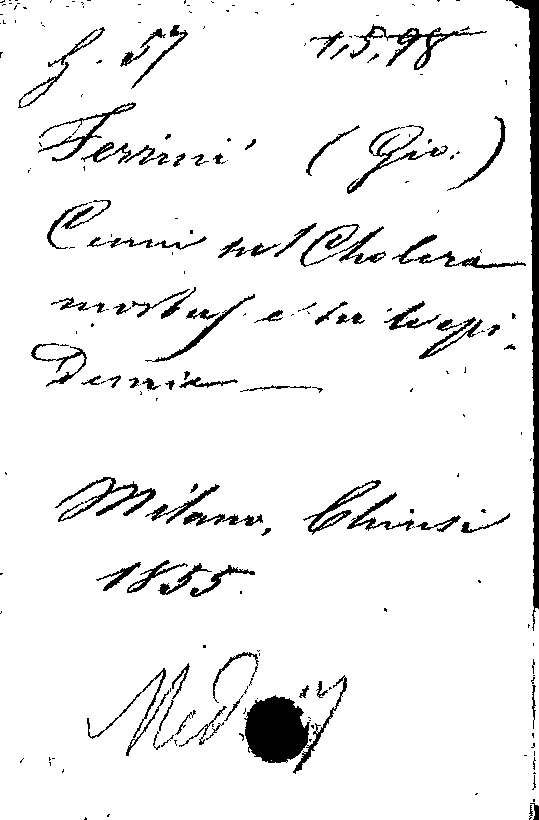 G. 57 1,5,98
Ferrini (Gio.)
Cenni sul Cholera
morbus e su le epi-
demie
Milano, Chiusi
1855
Med